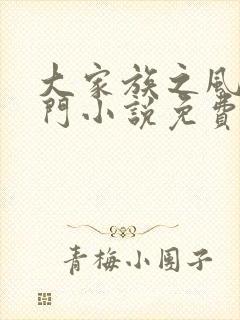 大家族之風
門小說免費
青梅小團子